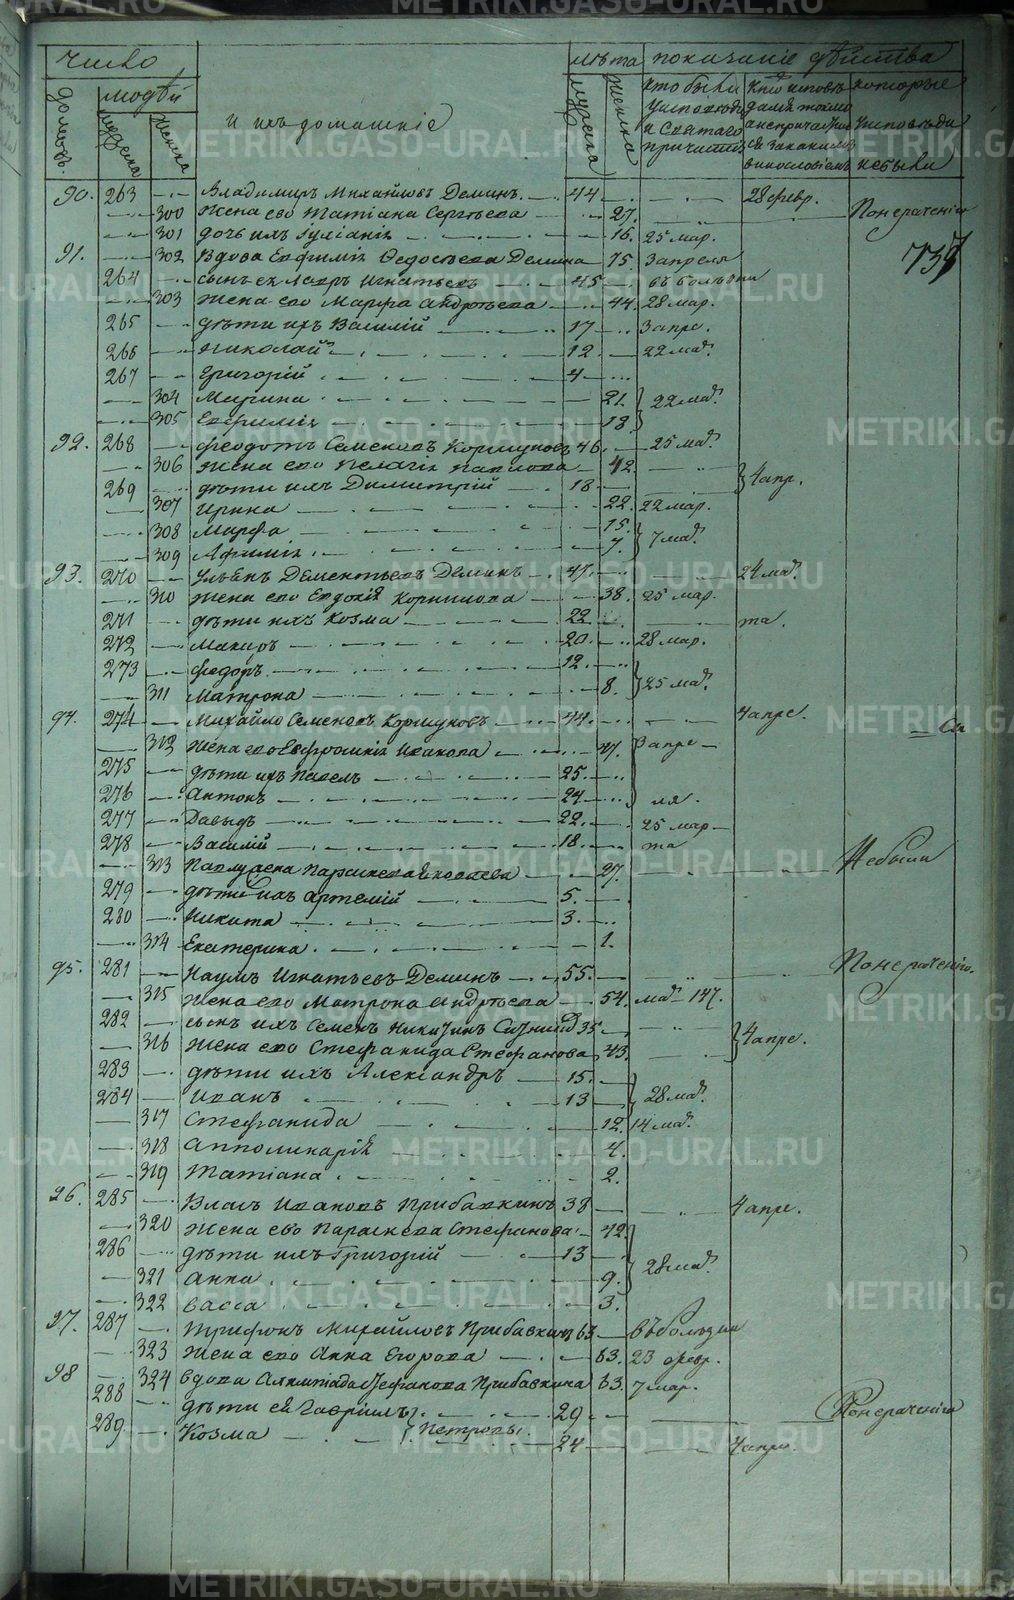 число
лѣта показанiе дѣйства
домовъ.
людѣй
мужеска
женска
и ихъ домашнiе
мужеска
женска
кто были у исповѣди и Святаго причастiя
кто исповѣдался токмо а не причастился и за какимъ винословiемъ
которые у исповѣди не были
90. 263 Владимиръ Михайловъ Деминъ. 44 28 февр.
300 жена его Татiана Сергѣева 27. По нераченiю
301 дочь ихъ Iулiанiя 16. 25 мар.
739
91. 302 Вдова Евфимiя Федосѣева Демина 75. 3 апреля
264 сынъ ея Лавръ Игнатьевъ 45 въ болѣзни
303 жена его Марфа Андрѣева 44. 28 мар.
265 дѣти ихъ Василiй 17 3 апре.
266 Николай 12. 22 мар.
267 Григорiй 4
304 Марина 21. 22 мар.
305 Евфимiя 13.
92. 268 Феодотъ Семеновъ Коршуновъ 46. 25 мар.
306 жена его Пелагiя Павлова 42. 4 апр.
269 дѣти ихъ Димитрiй 18
307 Ирина 22. 22 мар.
308 Марфа 15. 7 мар.
309 Афимiя 7.
93. 270 Ульянъ Дементьевъ Деминъ 47. 24 мар.
310 жена его Евдокiя Корнилова 38. 25 мар.
271 дѣти ихъ Козма 22 та.
272 Макаръ 20. 28 мар.
273 Федоръ 12.
311 Матрона 8. 25 мар.
94. 274 Михайло Семеновъ Коршуновъ 44. 4 апре.
312 жена его Евфросинiя Иванова 47. 3 апре
275 дѣти ихъ Павелъ 25.
276 Антонъ 24 ля.
277 Давыдъ 22. 25 мар
278 Василiй 18. та
313 Павлу жена Параскева Яковлева 27. Небыли
279 дѣти ихъ Артемiй 5.
280 Никита 3.
314 Екатерина 1.
95. 281 Наумъ Игнатьевъ Деминъ 55. По нераченiю.
315 жена его Матрона Андрѣева 54. мар 14.
282 сынъ ихъ Семенъ 35
316 жена его Стефанида Стефанова 43. 4 апре.
283 дѣти ихъ Александръ 15.
284 Иванъ 13 28 мар.
317 Стефанида 12. 14 мар.
318 Апполинарiя 4.
319 Татiана 2.
96. 285 Власъ Ивановъ Прибавкинъ 38 4 апре.
320 жена его Параскева Стефанова 42.
286 дѣти ихъ Григорiй 13 28 мар.
321 Анна 9.
322 Васса 3.
97. 287 Трифонъ Михайловъ Прибавкинъ 63 въ болѣзни
323 жена его Анна Егорова 63. 23 февр.
98 324 вдова Прибавкина 63. 7 мар.
288 дѣти ея Гаврiилъ 29 По нераченiю
289. Козма Петровы. 24 4 апре.
METRIKI.GASO-URAL.RU